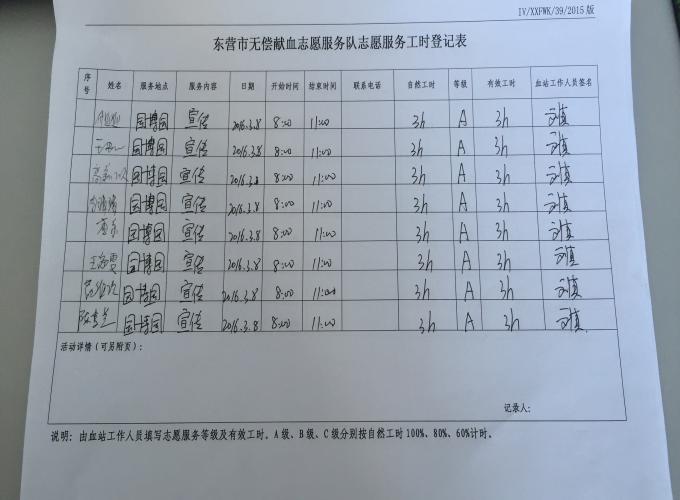 IV/XXFWK/39/2015版
东营市无偿献血志愿服务队志愿服务工时登记表
序号 姓名 服务地点 服务内容 日期 开始时间 结束时间 联系电话 自然工时 等级 有效工时 血站工作人员签名
园博园 宣传 2016.3.8 8:00 11:00 3h A 3h
园博园 宣传 2016.3.8 8:00 11:00 3h A 3h
园博园 宣传 2016.3.8 8:00 11:00 3h A 3h
园博园 宣传 2016.3.8 8:00 11:00 3h A 3h
园博园 宣传 2016.3.8 8:00 11:00 3h A 3h
园博园 宣传 2016.3.8 8:00 11:00 3h A 3h
园博园 宣传 2016.3.8 8:00 11:00 3h A 3h
园博园 宣传 2016.3.8 8:00 11:00 3h A 3h
活动详情（可另附页）：
记录人：
说明：由血站工作人员填写志愿服务等级及有效工时。A级、B级、C级分别按自然工时100%、80%、60%计时。